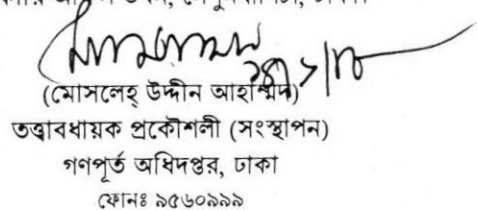 (মোসলেহ্ উদ্দীন আহাম্মদ)
তত্ত্বাবধায়ক প্রকৌশলী (সংস্থাপন)
গণপূর্ত অধিদপ্তর, ঢাকা
ফোনঃ ৯৫৬০৯৯৯